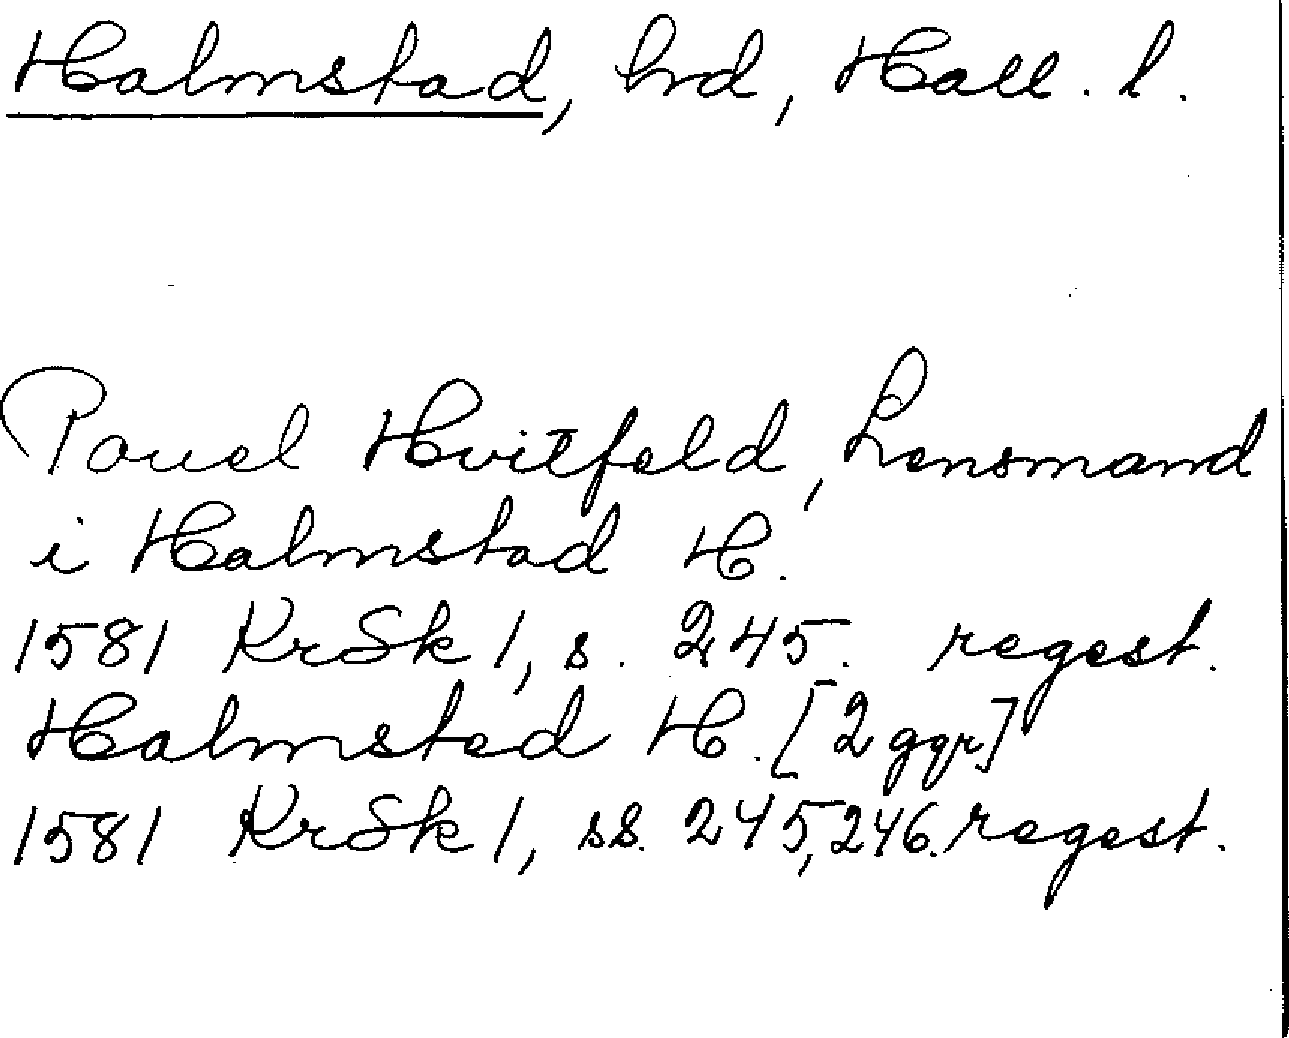 Halmstad, hrd, Hall. l.
Pouel Hvitfeld, Lensmand
i Halmstad H.
1581 KrSk 1, s. 245. regest.
Halmsted H. [2 ggr]
1581 KrSk 1, ss. 245, 246. regest.